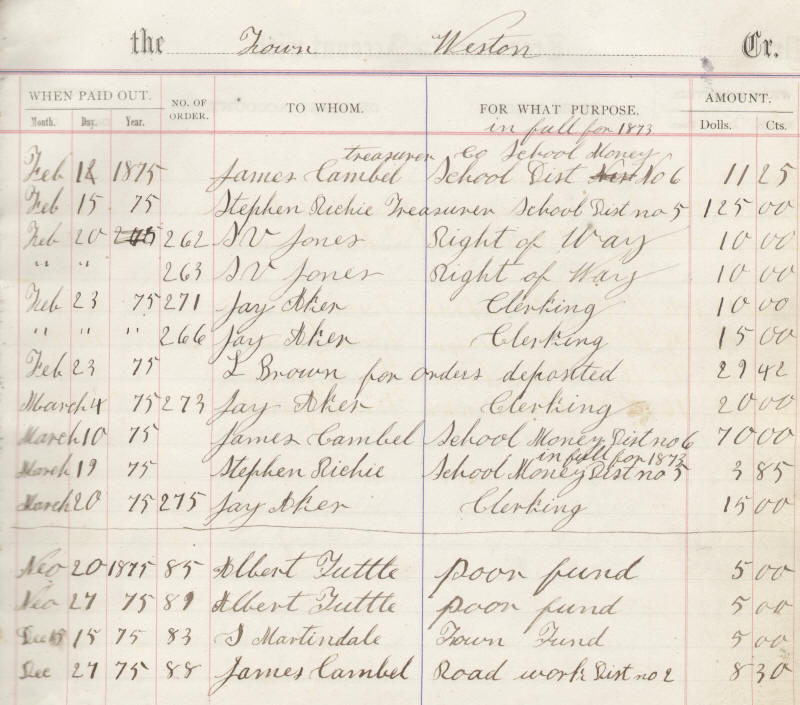 the Town Weston Cr.
WHEN PAID OUT. NO. OF ORDER. TO WHOM. FOR WHAT PURPOSE. AMOUNT.
Month. Day. Year. Dolls. Cts.
in full for 1873
treasurer Co School Money
Feb 12 1875 James Cambel School Dist No 6 11 25
Feb 15 75 Stephen Richie Treasurer School Dist no 5 125 00
Feb 20 262 S V Jones Right of Way 10 00
" " 263 S V Jones Right of Way 10 00
Feb 23 75 271 Jay Aker Clerking 10 00
" " " 266 Jay Aker Clerking 15 00
Feb 23 75 L Brown for orders deposited 29 42
March 4 75 273 Jay Aker Clerking 20 00
March 10 75 James Cambel School Money Dist no 6 70 00
in full for 1873
March 19 75 Stephen Richie School Money Dist no 5 3 85
March 20 75 275 Jay Aker Clerking 15 00
Nov 20 1875 85 Albert Tuttle poor fund 5 00
Nov 27 75 89 Albert Tuttle poor fund 5 00
Dec 15 75 83 S Martindale Town Fund 5 00
Dec 27 75 88 James Cambel Road work Dist no 2 8 30